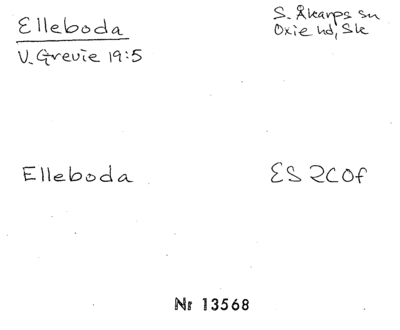 Elleboda
S. Åkarps sn
V. Grevie 19:5
Oxie hd, Sk
Elleboda
ES 2C0f
Nr 13568